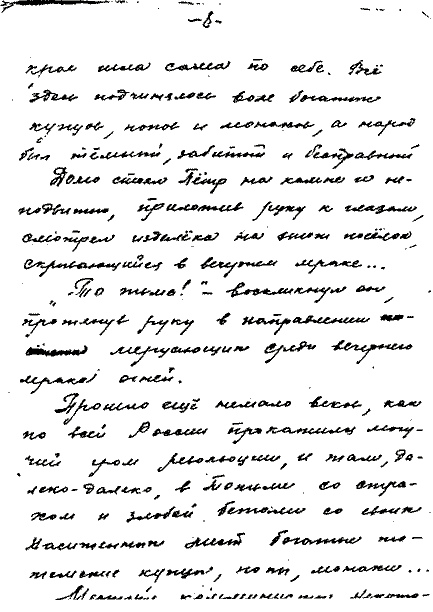 -8-
крае шла сама по себе. Всё
здесь подчинялось воле богатых
купцов, попов и монахов, а народ
был тёмный, забитый и бесправный
Долго стоял Пётр на камне и не-
подвижно, приложив руку к глазам,
смотрел издалека на этот посёлок,
скрывающийся в вечернем мраке...
"То тьма!" - воскликнул он,
протянув руку в направлении
мерцающих среди вечернего
мрака огней.
Прошло ещё немало веков, как
по всей России прокатился могу-
чий гром революции, и там, да-
леко-далеко, в Топильи со стра-
хом и злобой бежали со своих
насиженных мест богатые то-
темские купцы, попы, монахи...
Местные коммунисты